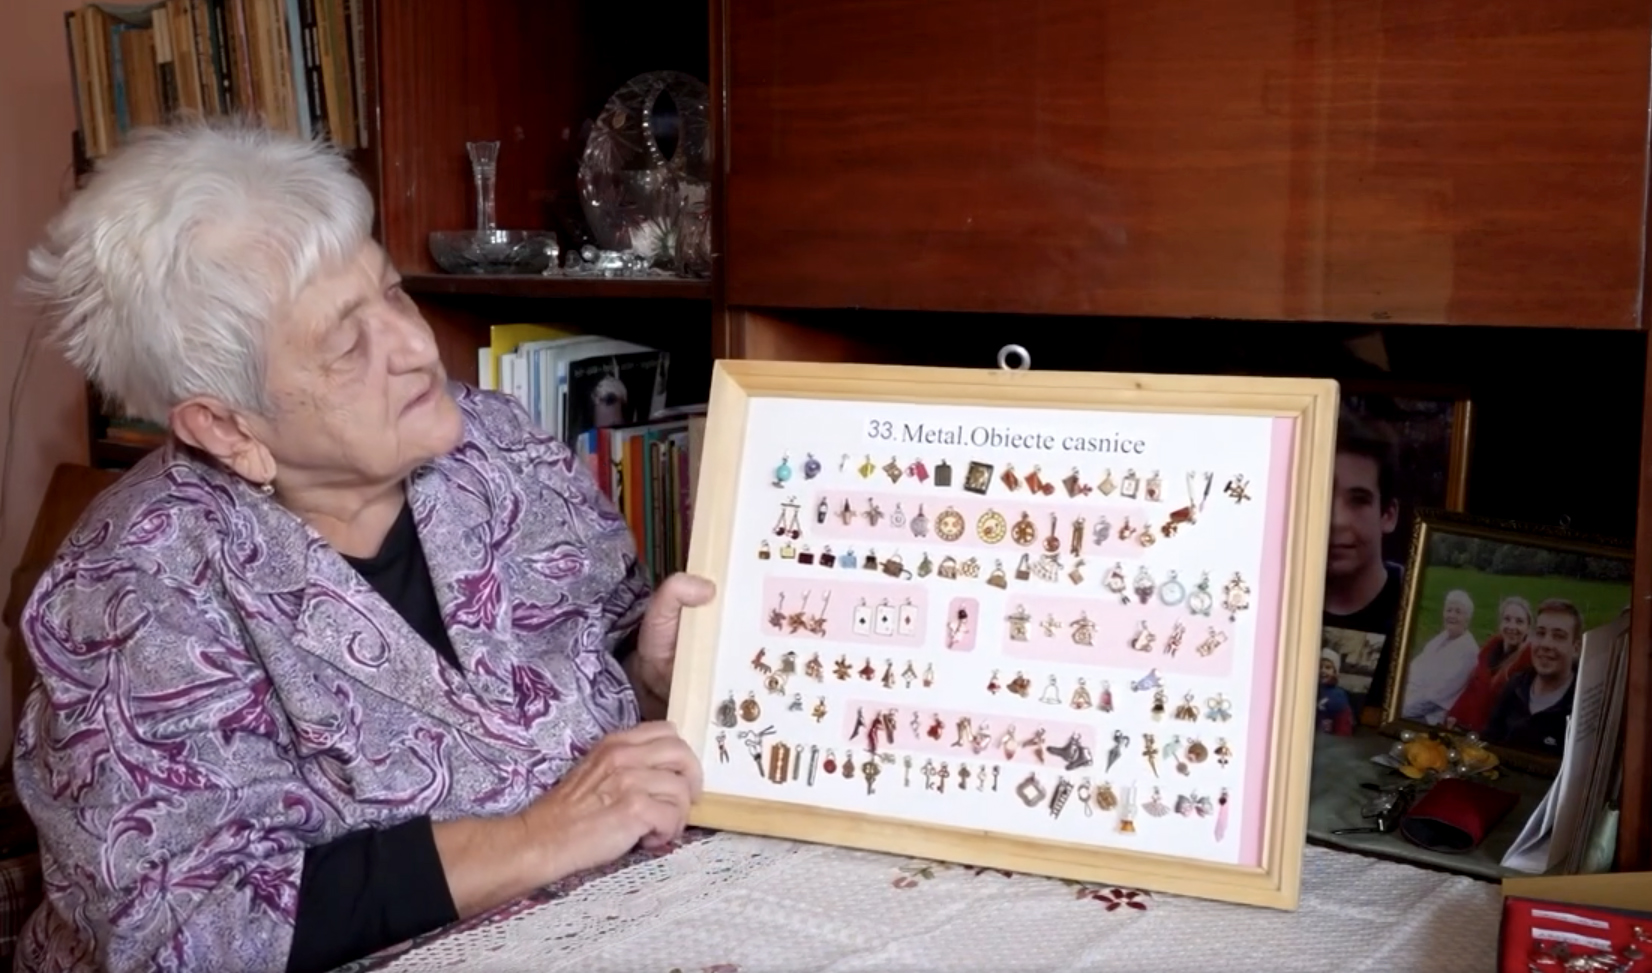 33. Metal.Obiecte casnice